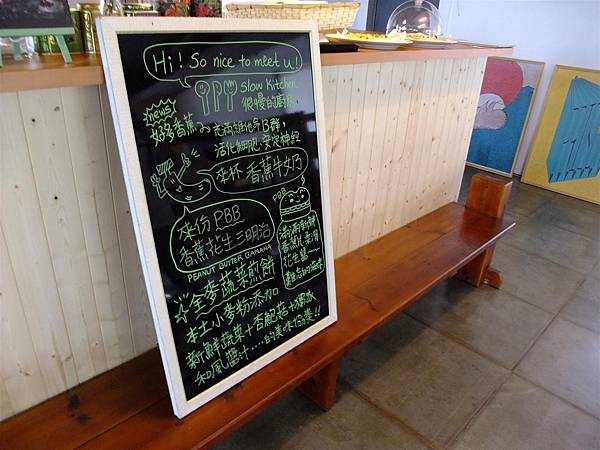 Hi! So nice to meet u!
Slow Kitchen
很慢的廚房
news
好多香蕉
充滿維他命B群,
活化細胞、安定神經
來杯香蕉牛奶
PBB
來份PBB
香蕉花生三明治
PEANUT BUTTER BANANA
滿滿新鮮
香蕉片,柔滑
花生醬
難忘的滋味
全麥蔬菜煎餅
本土小麥粉添加
新鮮蔬菜+杏鮑菇+獨家
和風醬汁....的美味協奏!!